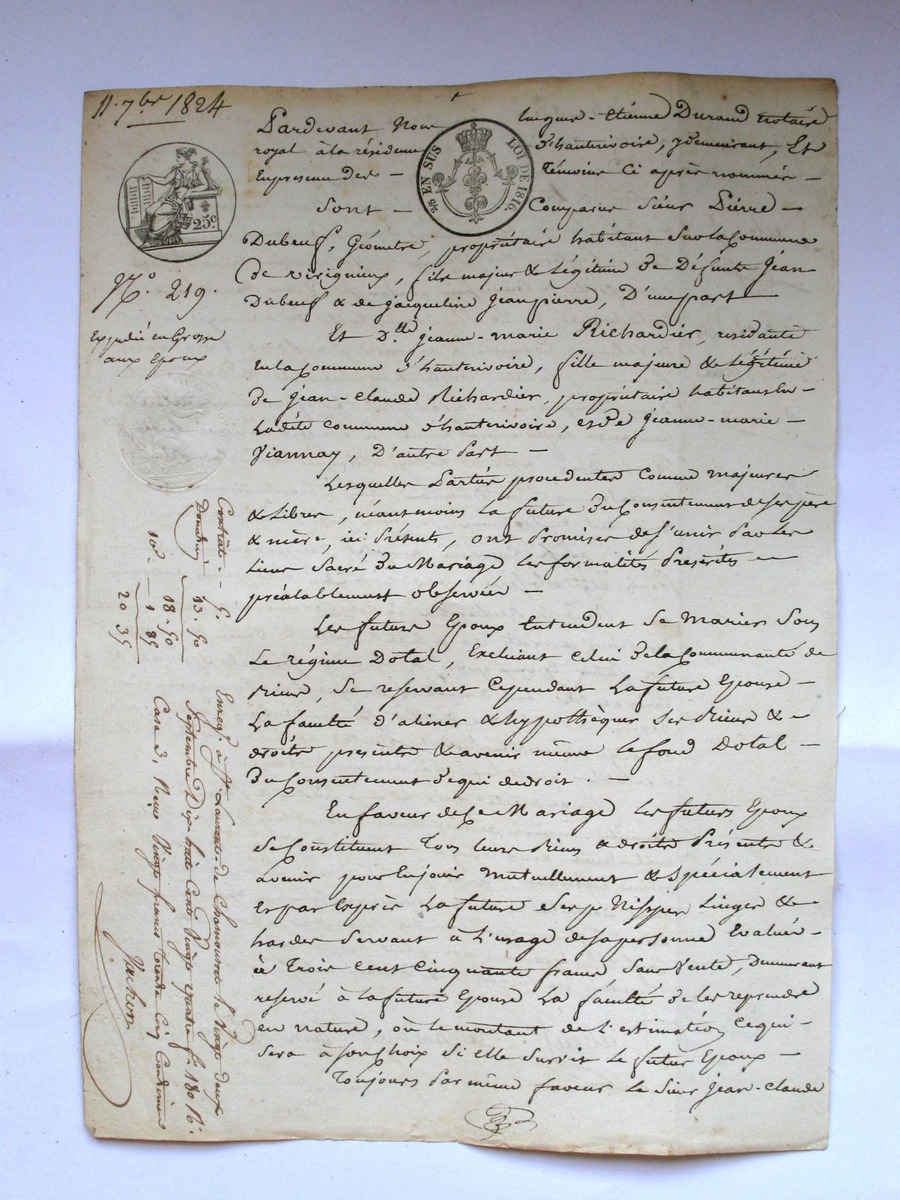 11. 7bre 1824
Pardevant Nous Jacques-Etienne Durand Notaire
royal à la résidence d'hauterivoire, y demeurant, Et
En presence des - Témoins Ci après nommés -
2/5 EN SUS
LOI DE 1816.
25c.
Sont - Comparus Sieur Pierre -
Dubeuf, Géometre, propriétaire habitant Sur la Commune
de Virigneux, fils majeur & Légitime de Défunts Jean
Dubeuf & de jacqueline jeanpierre, D'une part -
No. 219.
Expédié en Grosse
aux Epoux
Et Dlle jeanne-marie Richardier, residante
en la Commune d'hauterivoire, fille majeure & Légitime
de jean-Claude Richardier, propriétaire habitans en
Ladite Commune d'hauterivoire, et de jeanne-marie -
Viannay, D'autre Part -
Lesquelles Parties procedentes Comme majeures
& Libres, néantmoins la future du Consentement de ses père
& mère, ici Présents, ont Promises de s'unir Par les
Liens Sacré du Mariage les formalités Prescrites -
préalablement observées -
Les futurs Epoux Entendent Se Marier Sous
Le régime Dotal, Excluant Celui de la Communauté de
Biens, Se reservant Cependant La future Epouse -
La faculté d'aliéner & hypothèquer Ses Biens & -
droits presents & avenir même le fond Dotal -
du Consentement de qui de droit. -
En faveur de Ce Mariage les futurs Epoux
Se Constituent Tous leurs Biens & droits Présents &
avenir pour En jouir Mutuellement & Spécialement
Et par Exprès La future Ses Nippes Linges &
hardes Servant à l'usage de sa personne Evalués -
à Trois cent Cinquante francs Sans Vente, Demeurant
reservé à la future Epouse La faculté de les reprendre
en nature, où le montant de l'estimation, Ce qui -
Sera à Son Choix Si elle Survit le futur Epoux -
Toujours Par même faveur le Sieur Jean-Claude
Contrat - 5.
Donation 13. 50
18. 50
10e. - 1 85
20 35
Enregé à St Laurent-de Chamousset le Vingt deux
Septembre Dix huit Cent Vingt quatre f. 180 R.
Case 3, Reçu Vingt francs trente Cinq Centimes